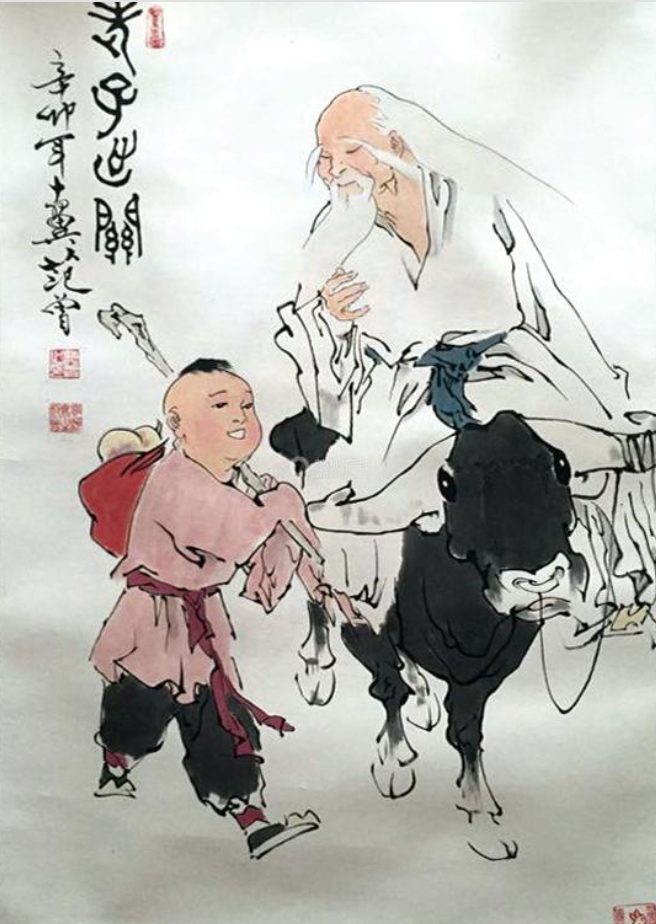 老子出關
辛卯年十翼范曾